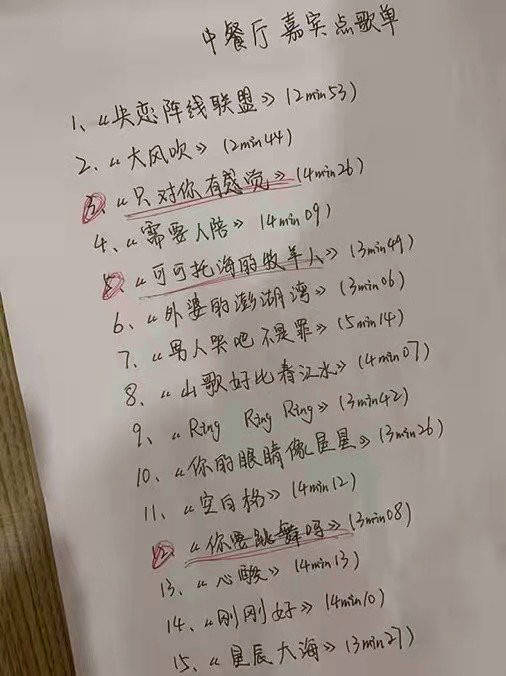 中餐厅 嘉宾点歌单
1、《失恋阵线联盟》(2min53)
2、《大风吹》(2min44)
3、《只对你有感觉》(4min26)
4、《需要人陪》(4min09)
5、《可可托海的牧羊人》(3min49)
6、《外婆的澎湖湾》(3min06)
7、《男人哭吧不是罪》(5min14)
8、《山歌好比春江水》(4min07)
9、《Ring Ring Ring》(3min42)
10、《你的眼睛像星星》(3min26)
11、《空白格》(4min12)
12、《你要跳舞吗》(3min08)
13、《心酸》(4min13)
14、《刚刚好》(4min10)
15、《星辰大海》(3min27)